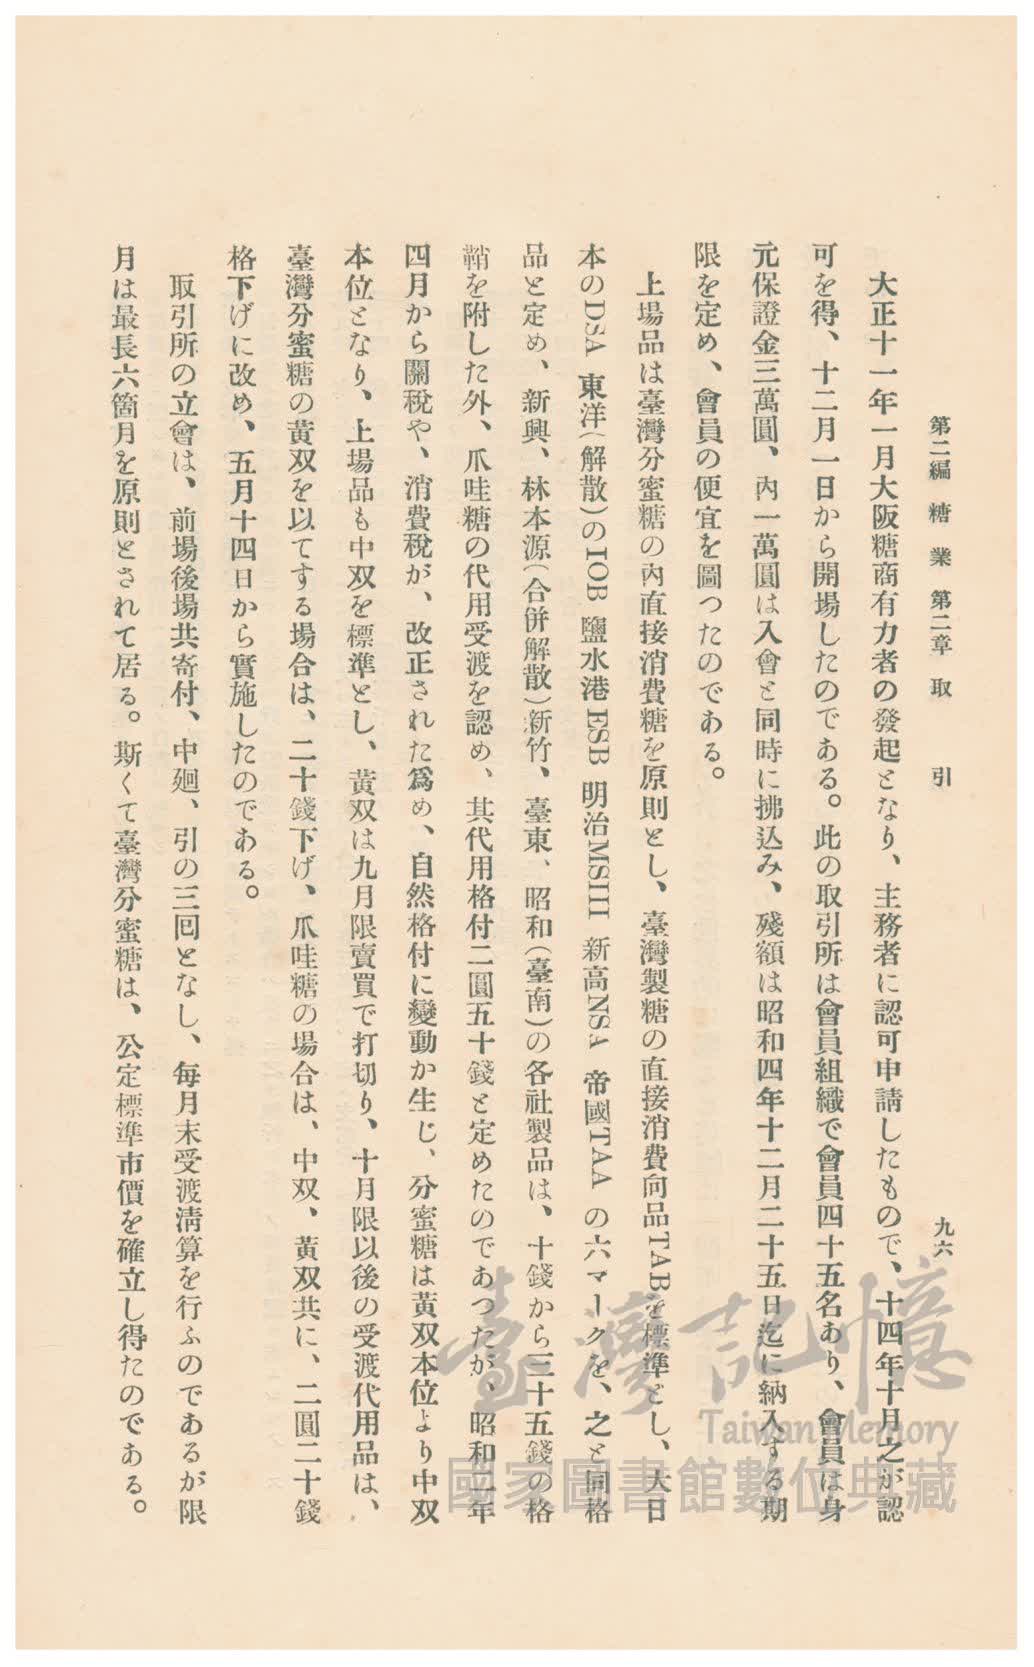 第二編 糖業 第二章 取引
九六
大正十一年一月大阪糖商有力者の發起となり、主務者に認可申請したもので、十四年十月之が認
可を得、十二月一日から開場したのである。此の取引所は會員組織で會員四十五名あり、會員は身
元保證金三萬圓、內一萬圓は入會と同時に拂込み、殘額は昭和四年十二月二十五日迄に納入する期
限を定め、會員の便宜を圖つたのである。
上場品は臺灣分蜜糖の內直接消費糖を原則とし、臺灣製糖の直接消費向品TABを標準とし、大日
本のDSA 東洋(解散)のIOB 鹽水港ESB 明治MSIII 新高NSA 帝國TAA の六マークを、之と同格
品と定め、新興、林本源(合併解散)新竹、臺東、昭和(臺南)の各社製品は、十錢から三十五錢の格
鞘を附した外、爪哇糖の代用受渡を認め、其代用格付二圓五十錢と定めたのであつたが、昭和二年
四月から關稅や、消費稅が、改正された爲め、自然格付に變動か生じ、分蜜糖は黃双本位より中双
本位となり、上場品も中双を標準とし、黃双は九月限賣買で打切り、十月限以後の受渡代用品は、
臺灣分蜜糖の黃双を以てする場合は、二十錢下げ、爪哇糖の場合は、中双、黃双共に、二圓二十錢
格下げに改め、五月十四日から實施したのである。
取引所の立會は、前場後場共寄付、中廻、引の三回となし、每月末受渡淸算を行ふのであるが限
月は最長六箇月を原則とされて居る。斯くて臺灣分蜜糖は、公定標準市價を確立し得たのである。
臺灣記憶
Taiwan Memory
國家圖書館數位典藏